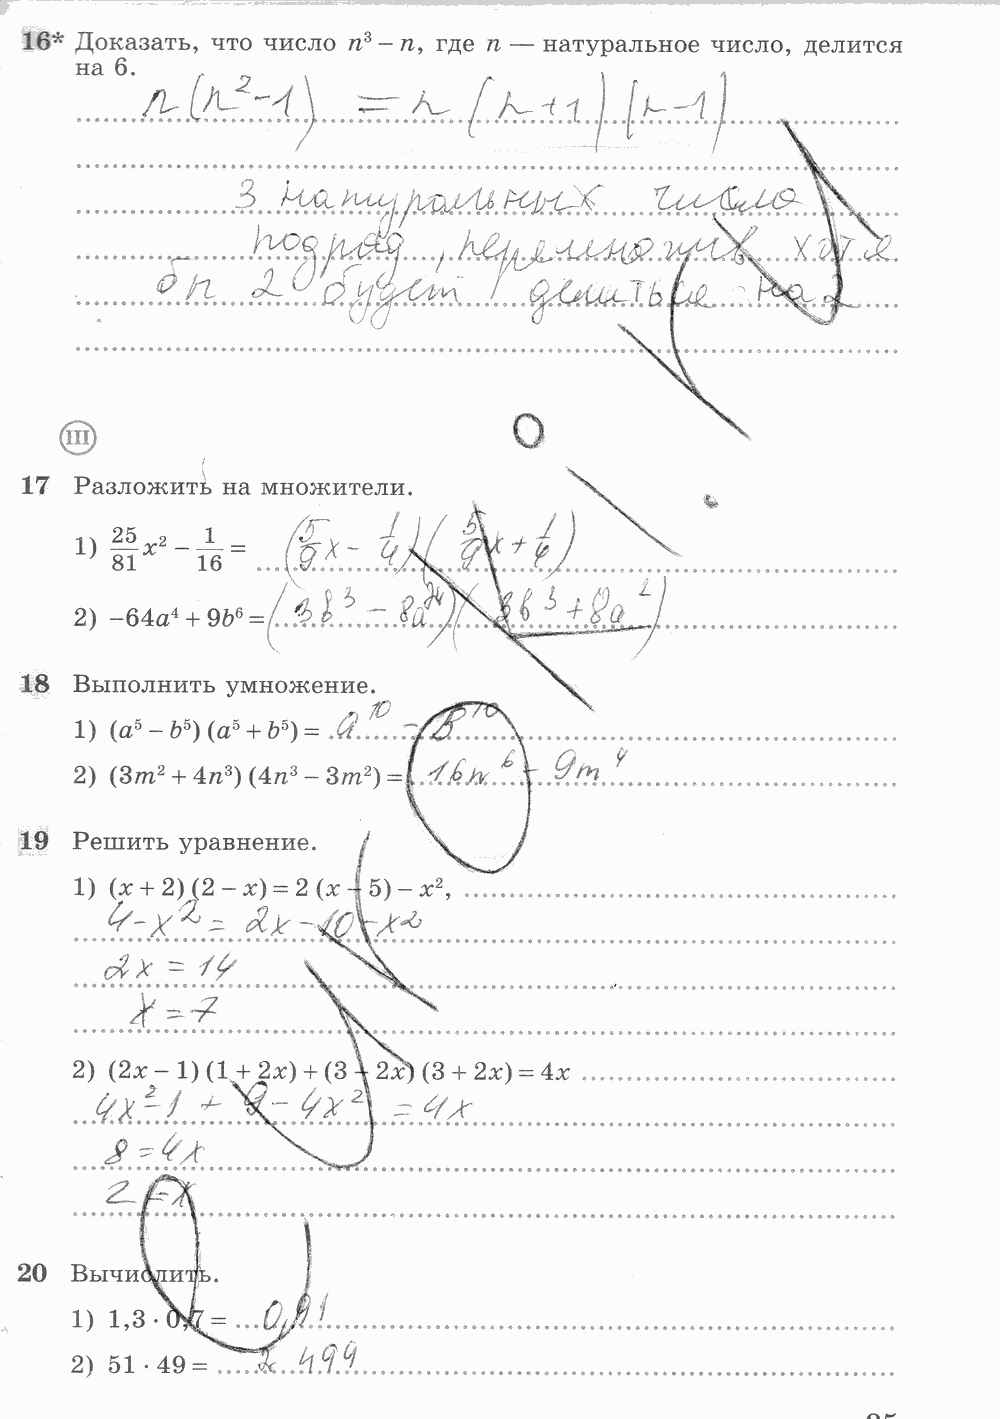 16* Доказать, что число n³ – n, где n — натуральное число, делится
на 6.
n(n²-1) = n(n+1)(n-1)
3 натуральных числа
подряд, перемножив хотя
бы 2 будет делиться на 2
III
17 Разложить на множители.
1) 25/81 x² – 1/16 = (5/9 x - 1/4)(5/9 x + 1/4)
2) –64a⁴ + 9b⁶ = (3b³ - 8a²)(3b³ + 8a²)
18 Выполнить умножение.
1) (a⁵ – b⁵) (a⁵ + b⁵) = a¹⁰ - b¹⁰
2) (3m² + 4n³) (4n³ – 3m²) = 16n⁶ - 9m⁴
19 Решить уравнение.
1) (x + 2) (2 – x) = 2 (x – 5) – x²,
4-x² = 2x-10-x²
2x = 14
x = 7
2) (2x – 1) (1 + 2x) + (3 – 2x) (3 + 2x) = 4x
4x²-1 + 9-4x² = 4x
8 = 4x
2 = x
20 Вычислить.
1) 1,3 · 0,7 = 0,91
2) 51 · 49 = 2499